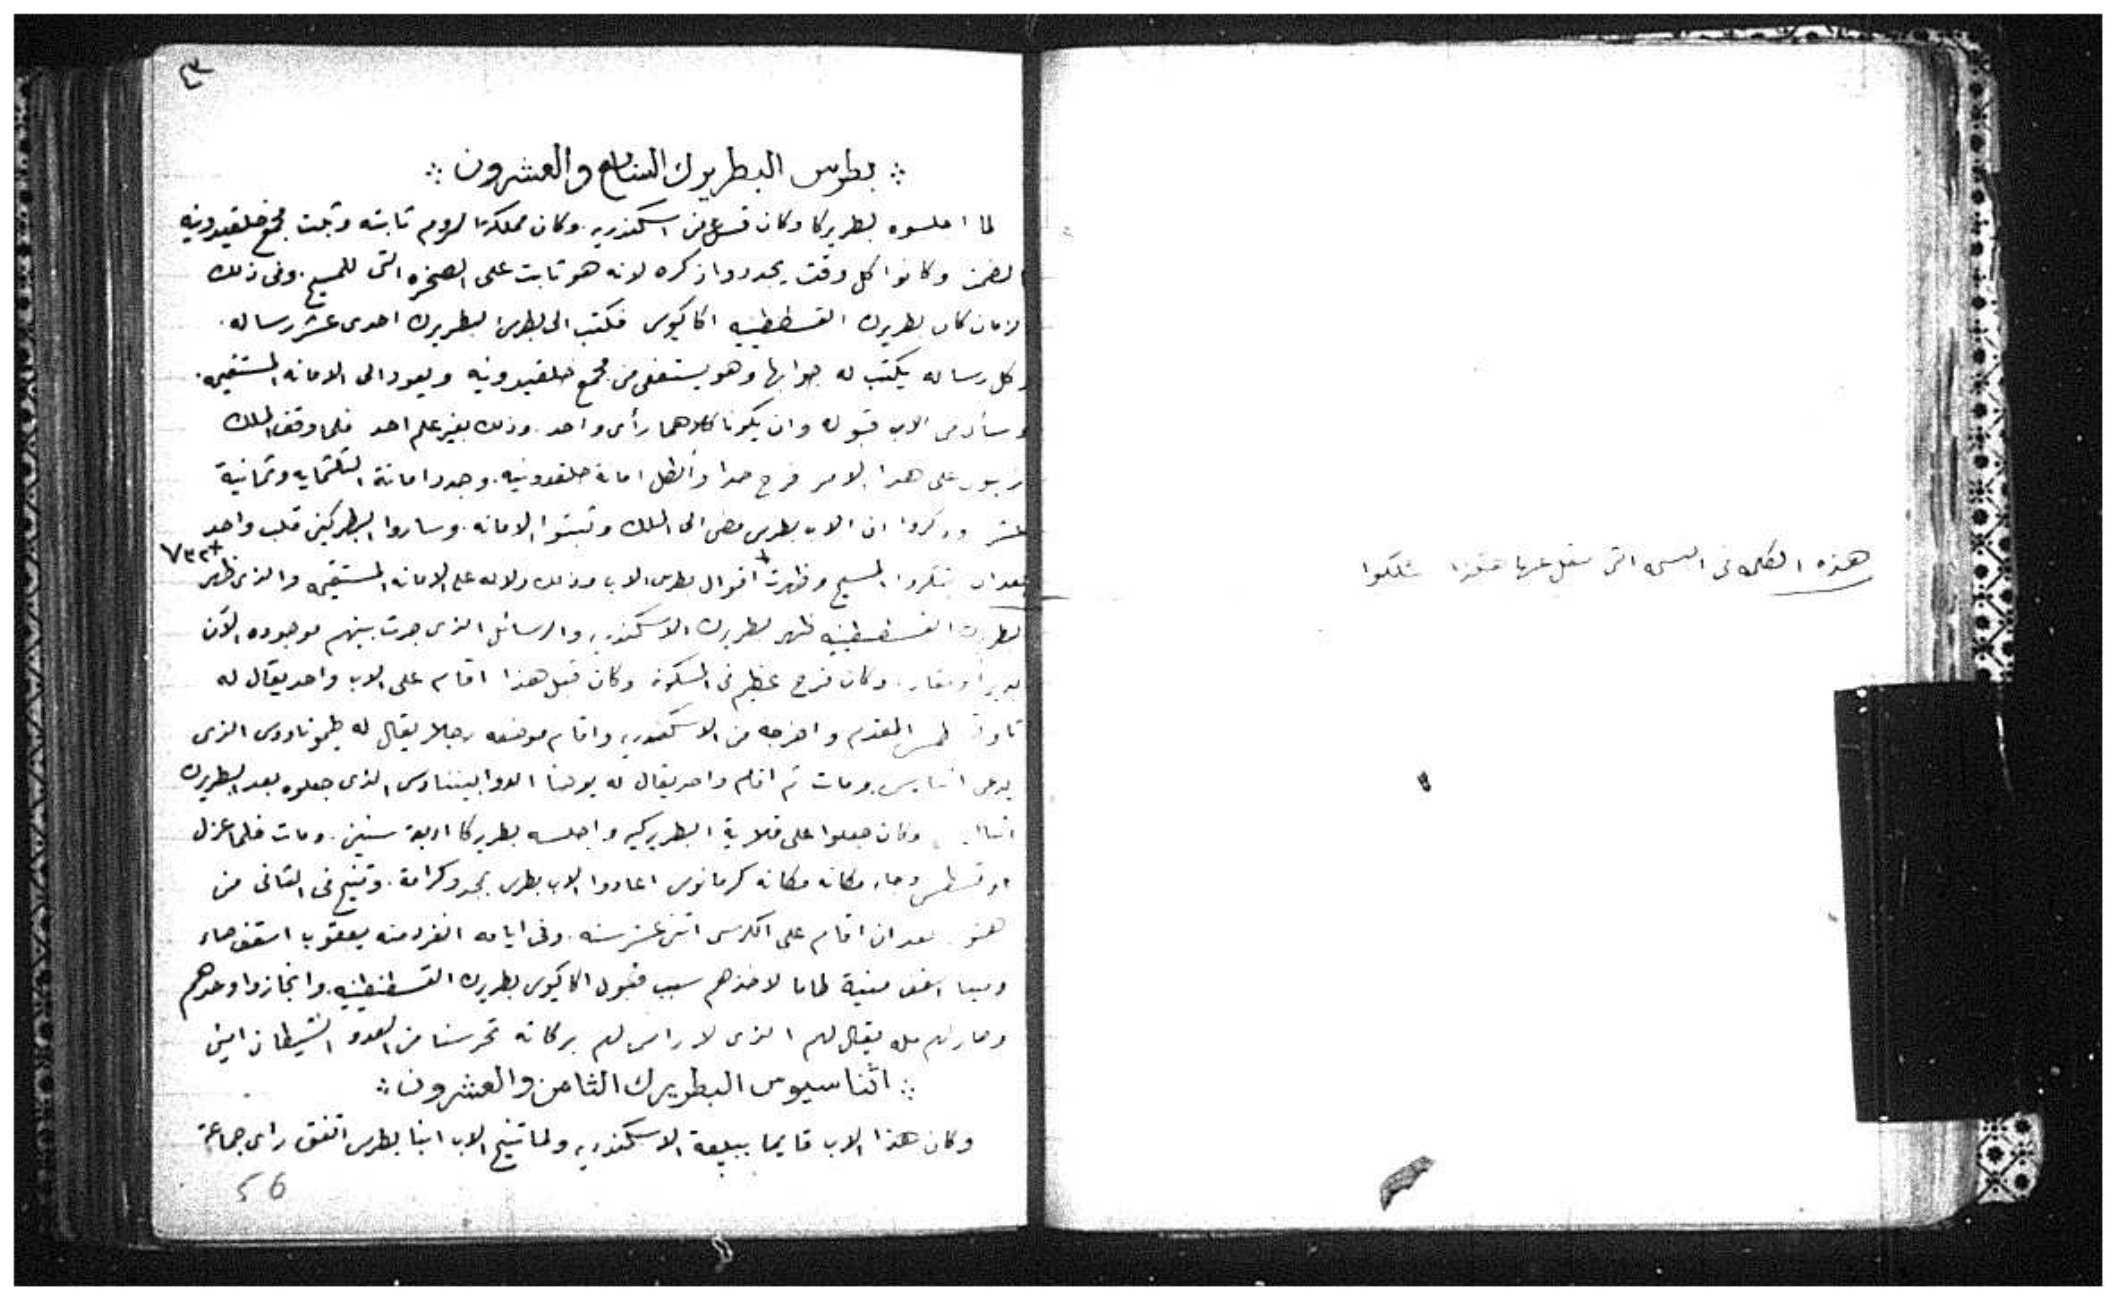 هذه الكلمه فى النسخه التى نقل عنها هكذا شككوا
٤٣
بطرس البطريرك السابع والعشرون
لما اجلسوه بطريركا وكان قس من اسكندريه. وكان مملكة الروم ثابته وثبت مجمع خلقيدونيه
وكانوا كل وقت يجددوا ذكره لانه هو ثابت على الصخره التى للمسيح. وفى ذلك
الزمان كان بطريرك القسطنطينيه اكاكيوس فكتب الى بطرس البطريرك احدى عشر رساله.
وكل رساله يكتب له جوابها وهو يستعفى من مجمع خلقيدونيه ويعود الى الامانه المستقيمه.
وسأل من الاب قبوله وان يكونا كلاهما رأى واحد. وذلك بغير علم احد فلما وقف الملك
زينون على هذا الامر فرح جدا وأبطل امانة خلقدونيه. وجدد امانة الثلثمايه وثمانية
عشر وذكروا ان الاب بطرس مضى الى الملك وثبتوا الامانه. وساروا البطركين قلب واحد
بعد ان المسيح وظهرت اقوال بطرس الاب وذلك دلاله على الامانه المستقيمه والذى ظهر
٧٣٢
لبطريرك القسطنطينيه ظهر لبطريرك الاسكندريه والرسائل الذى جرت بينهم موجوده الآن
بدير ابو مقار. وكان فرح عظيم فى المسكونة وكان قبل هذا اقام على الاب واحد يقال له
المقدم واخرجه من الاسكندريه واقام موضعه رجلا يقال له طيموتاوس الذى
يدعى ومات ثم اقام واحد يقال له يوحنا الذى جعلوه بعد البطريرك
وكان جعلوا على قلاية البطريركيه واجلسه بطريركا اربعة سنين. ومات فلما عزل
وجاء مكانه مكانه كرمانوس اعادوا الاب بطرس بمجد وكرامة. وتنيح فى الثانى من
هتور بعد ان اقام على الكرسى اثنى عشر سنه. وفى ايامه انفرد منه يعقوب اسقف صاء
ومينا اسقف منية طاما لاخذهم سبب قبول اكاكيوس بطريرك القسطنطينيه. وانحازوا وحدهم
وصار لهم مله يقال لهم الذى لا راس لهم بركاته تحرسنا من العدو الشيطان امين
اثناسيوس البطريرك الثامن والعشرون
وكان هذا الاب قايما ببيعة الاسكندريه ولما تنيح الاب انبا بطرس اتفق راى جماعة
56